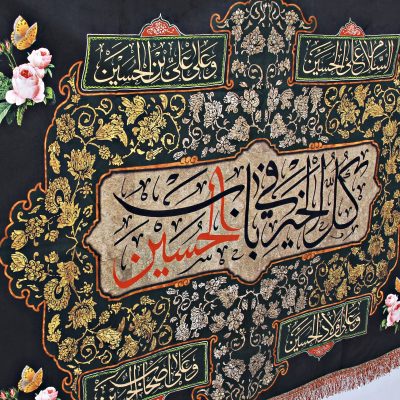 السلام علی الحسین
وعلی علی بن الحسین
کل الخیر فی باب الحسین
وعلی اولاد الحسین
وعلی اصحاب الحسین